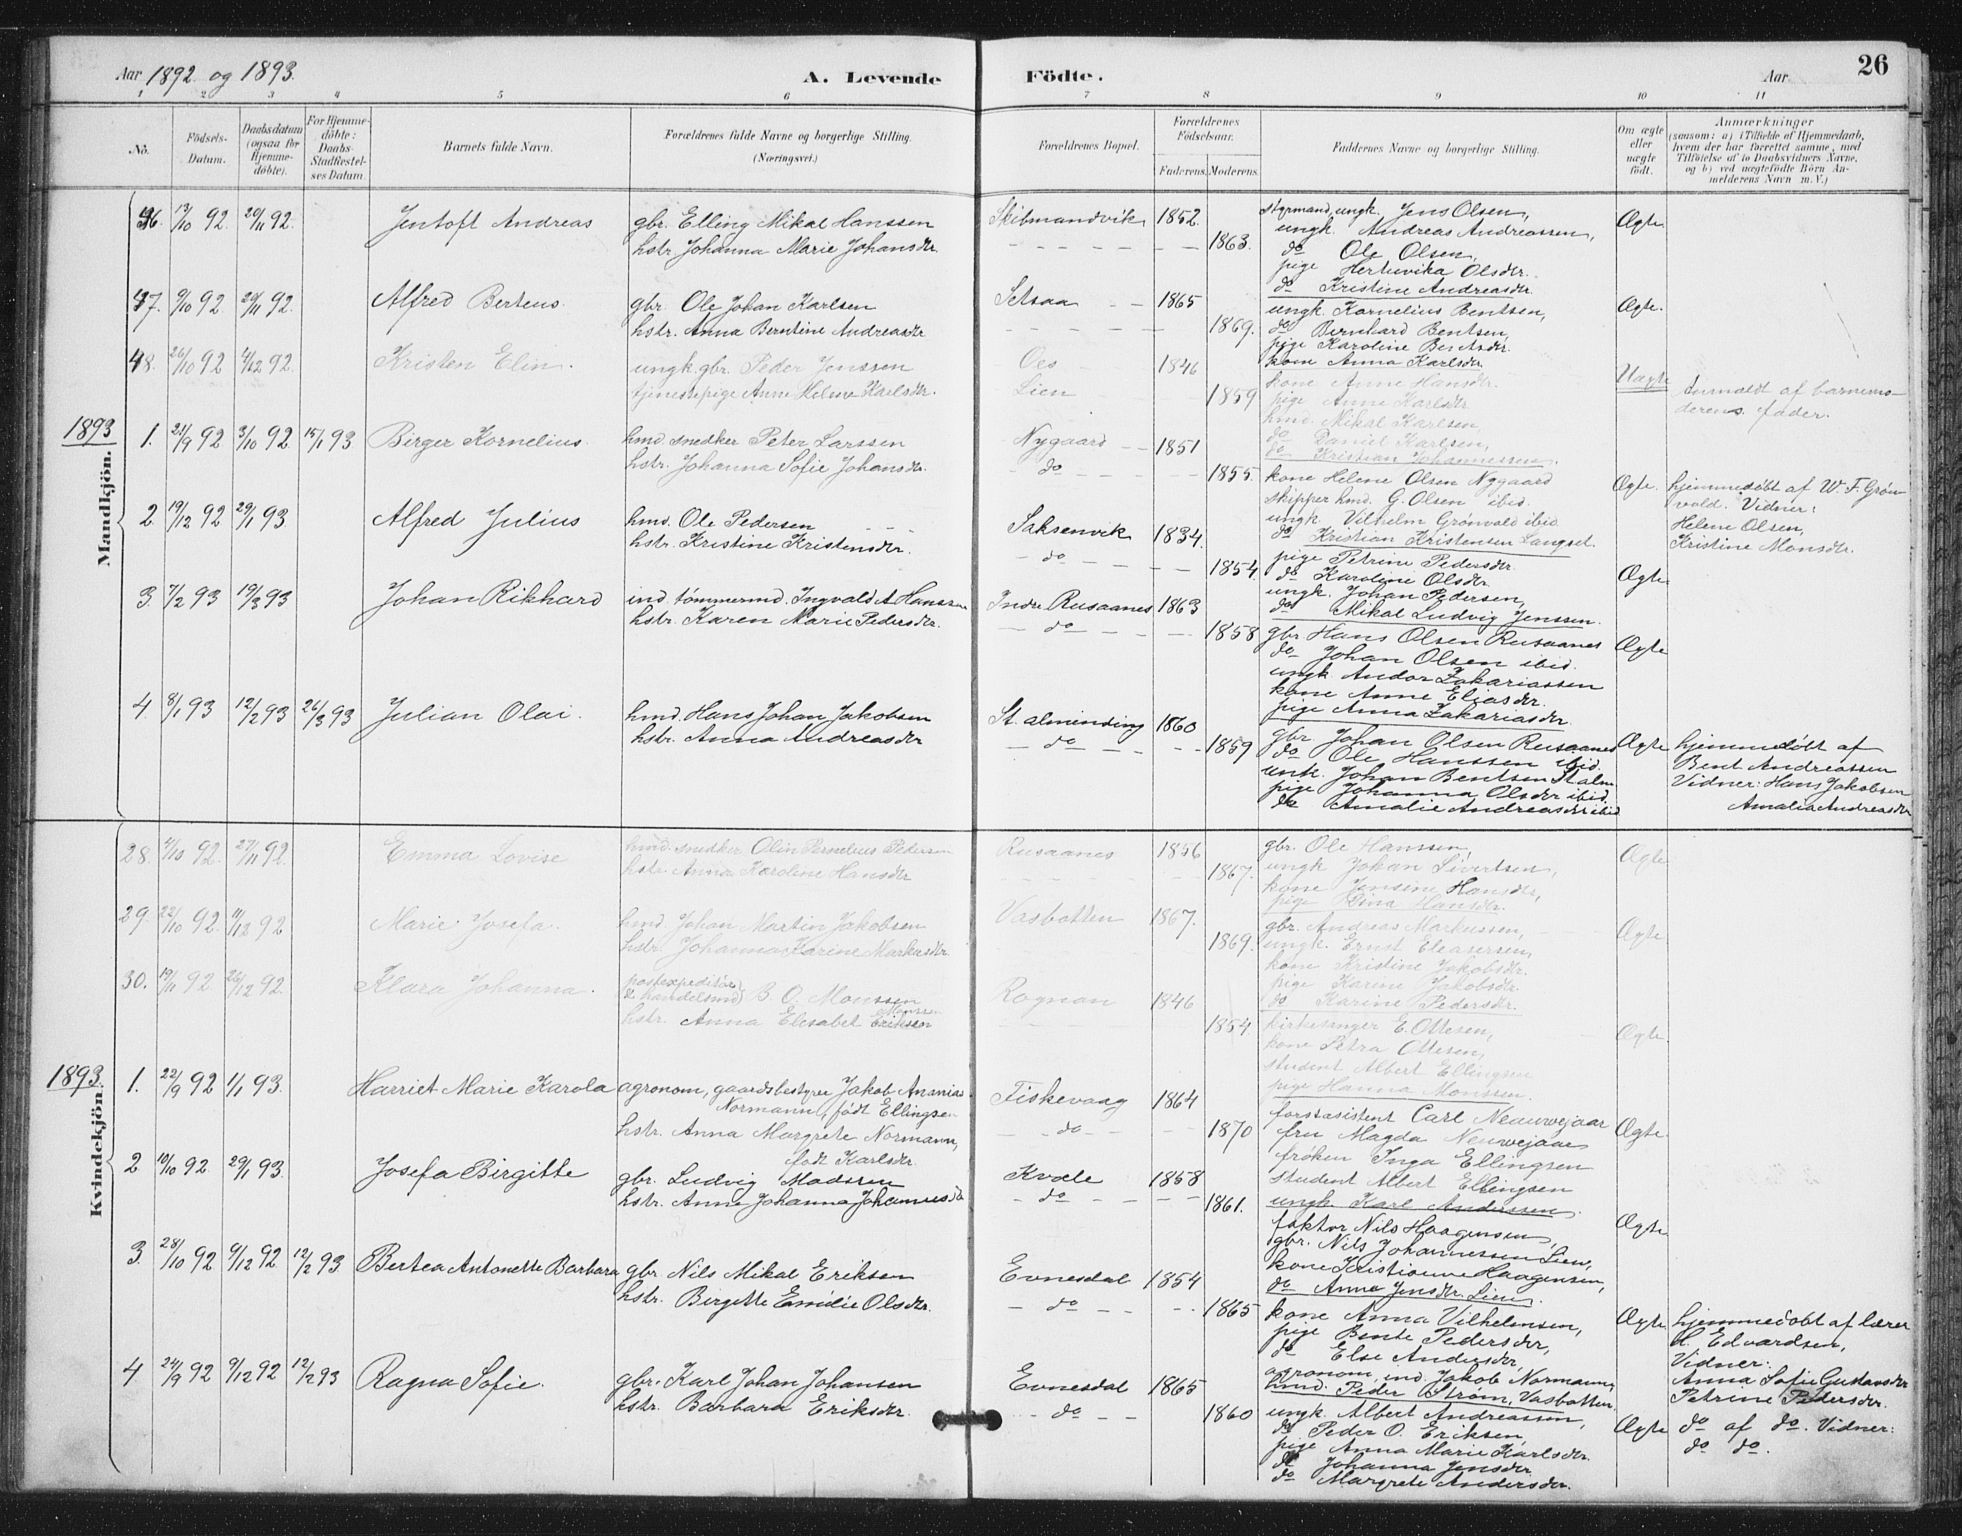 Aar 1892 og 1893. A. Levende Födte. Aar 26
1 2 3 4 5 6 7 8 9 10 11
No. Födsels-Datum. Daabsdatum (ogsaa for Hjemmedöbte). For Hjemmedöbte: Daabs-Stadfæstelses Datum. Barnets fulde Navn. Forældrenes fulde Navne og borgerlige Stilling. (Næringsvei.) Forældrenes Bopæl. Forældrenes Födselsaar. Faderens. Moderens. Faddernes Navne og borgerlige Stilling. Om ægte eller uægte födt. Anmærkninger (saasom: a) i Tilfælde af Hjemmedaab, hvem der har forrettet samme, med Tilföielse af to Daabsvidners Navne, og b) ved uægtefödte Börn Anmelderens Navn m. V.)
Mandkjön.
46. 13/10 92. 20/11 92. Jentoft Andreas gbr. Elling Mikal Hanssen Skibmandvik 1852. styrmand, ungk. Jens Olsen, Ægte
hstr. Johanna Marie Johansdtr. 1863. ungk. Andreas Andreassen,
do Ole Olsen,
pige Hertuvika Olsdtr.
do Kristine Andreasdtr.
47. 9/10 92. 20/11 92. Alfred Berteus. gbr. Ole Johan Karlsen Setsaa 1865 ungk. Kornelius Bentsen, Ægte.
hstr. Anna Berntine Andreasdtr 1869. do Bernhard Bentsen,
pige Karoline Bentsdtr.
kone Anna Karlsdtr
48. 26/10 92 4/12 92. Kristen Elin. ungk. gbr. Peder Jenssen Oes 1846 kone Anne Hansdtr. Uægte Anmeldt af barnemo-
tjenestepige Anne Helene Karlsdtr. Lien 1859 pige Anne Karlsdtr derens fader.
hmd. Mikal Karlsen,
do Daniel Karlsen,
do Kristian Johannessen.
1893 1. 21/9 92 3/10 92 15/1 93 Birger Kornelius. hmd. snedker Peter Larssen Nygaard 1851 kone Helene Olsen Nygaard Ægte. hjemmedøbt af W. F. Grøn-
hstr. Johanna Sofie Johansdtr. do 1855. skipper hmd. G. Olsen ibid. vold. Vidner:
ungk. Vilhelm Grønvold ibid. Helene Olsen,
do Kristian Kristensen Langset. Kristine Monsdtr.
2. 19/12 92 29/1 93 Alfred Julius hmd. Ole Pedersen Saksenvik 1834. pige Petrine Pedersdtr. Ægte
hstr. Kristine Kristensdtr. do 1854. do Karoline Olsdtr.
ungk. Johan Pedersen,
do Mikal Ludvig Jenssen.
3. 7/2 93 19/3 93 Johan Rikhard ind. tømmermd. Ingvald A Hanssen Indre Rusaanes 1863 gbr Hans Olsen Rusaanes Ægte
hstr. Karen Marie Pedersdtr. do 1858 do Johan Olsen ibid.
ungk Andor Zakariassen
kone Anne Eliasdtr.
pige Anna Zakariasdtr
4 8/1 93 12/2 93 26/3 93 Julian Olai. hmd. Hans Johan Jakobsen St. alminding 1860 gbr. Johan Olsen Rusaanes Ægte hjemmedøbt af
hstr. Anna Andreasdtr do 1859 do Ole Hanssen ibid. Bent Andreassen
ungk. Johan Bentsen St alm Vidner: Hans Jakobsen
pige Johanna Olsdtr ibid. Amalia Andreasdtr
do Amalie Andreasdtr ibid
Kvindekjön.
28. 4/10 92. 27/11 92. Emma Lovise hmd. snedker Olin Pernelius Pedersen Rusaanes 1856 gbr. Ole Hanssen, Ægte
hstr. Anna Karoline Hansdtr 1867. ungk Johan Sivertsen,
kone Jensine Hansdtr,
pige Dina Hansdtr.
29. 22/10 92. 11/12 92 Marie Josefa. hmd. Johan Martin Jakobsen Vasbotten 1867. gbr. Andreas Markussen, Ægte
hstr. Johanna Karine Markusdtr. 1869. ungk. Ernst Eleasersen,
kone Kristine Jakobsdtr.
pige Karine Jakobsdtr
do Karine Pedersdtr.
30. 19/11 92. 26/12 92. Klara Johanna. postexpeditør & handelsmd B. O. Monssen Rognan 1846 kirkesanger E. Ottesen, Ægte.
hstr. Anna Elesabet Eriksen Monssen 1854 kone Petra Ottesen,
student Albert Ellingsen
pige Hanna Monssen.
1893. 1. 22/9 92 1/1 93. Harriet Marie Karola agronom, gaardsbestyrer Jakob Ananias Fiskevaag 1864 forstasistent Carl Neuwejaar Ægte.
Normann, født Ellingsen do 1870 fru Magda Neuwejaar
hstr. Anna Margrete Normann, frøken Inga Ellingsen
født Karlsdtr. student Albert Ellingsen
ungk. Karl Anderssen.
2 10/10 92. 29/1 93. Josefa Birgitte gbr. Ludvig Madssen Kvæle 1858 faktor Nils Haagensen, Ægte
hstr. Anne Johanna Johannesdtr do 1861. gbr. Nils Johannessen Lien,
kone Kristianne Haagensen,
do Anne Jensdtr. Lien.
3. 28/10 92 9/12 92 12/2 93. Bertea Antonette Barbara gbr Nils Mikal Eriksen Evnesdal 1854 kone Anna Vilhelmsen, Ægte hjemmedøbt af lærer
hstr. Birgitte Emilie Olsdtr. do 1865 pige Bente Pedersdtr, H. Edvardsen,
do Else Andersdtr, Vidner:
agronom, ind. Jakob Normann, Anna Sofie Gustavsdtr
hmd. Peder Strøm, Vasbotten. Petrine Pedersdtr.
4 24/9 92 9/12 92 12/2 93 Ragna Sofie. gbr. Karl Johan Johansen Evnesdal 1865 ungk. Albert Andreassen, Ægte do af do. Vidner:
hstr. Barbara Eriksdtr. do 1860 do Peder O. Eriksen, do do.
pige Anna Marie Karlsdtr.
do Johanna Jensdtr.
do Margrete Andersdtr.